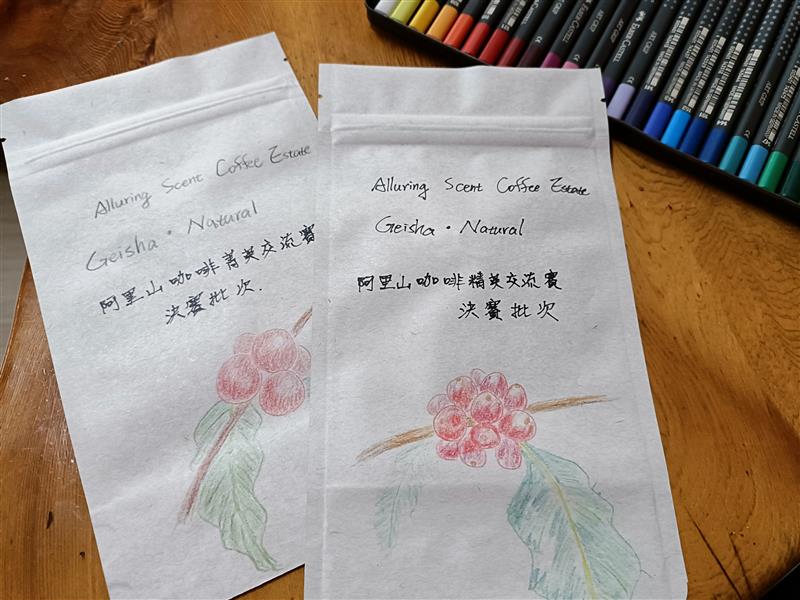 Alluring Scent Coffee Estate
Geisha · Natural
阿里山咖啡菁英交流賽
決賽批次.
Alluring Scent Coffee Estate
Geisha · Natural
阿里山咖啡精英交流賽
決賽批次